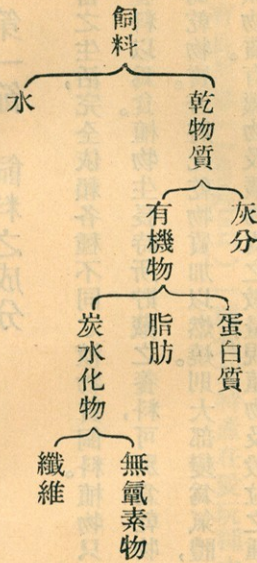 飼料
乾物質
水
灰分
有機物
蛋白質
脂肪
炭水化物
無氮素物
纖維